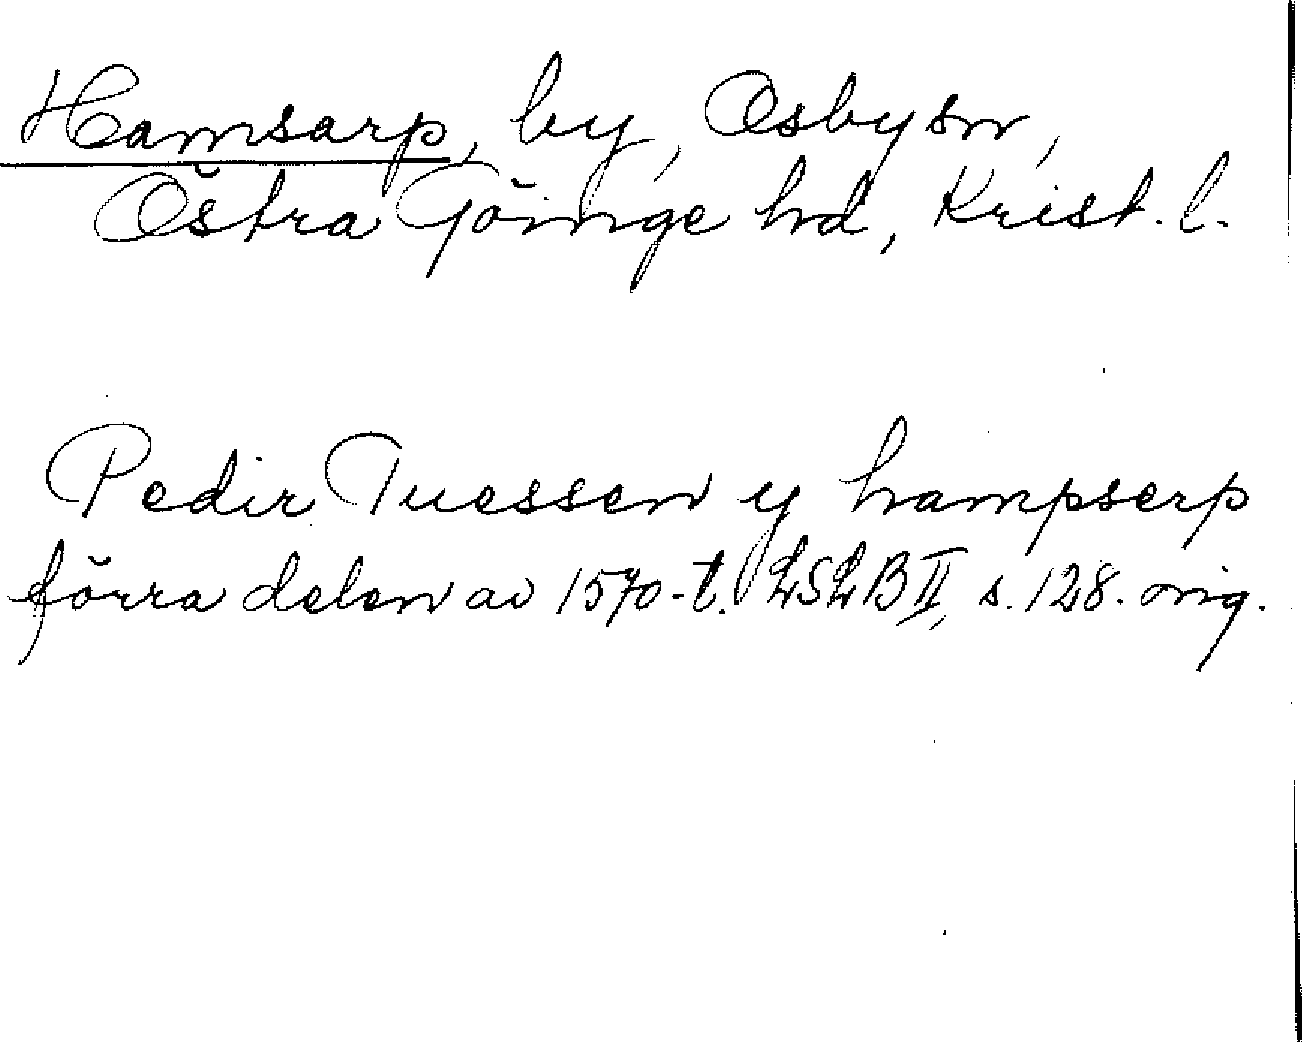 Hamsarp, by, Osby sn,
Östra Göinge hd, Krist. l.
Pedir Tuessen y hampserp
förra delen av 1570-t. LSLB II, s. 128. orig.